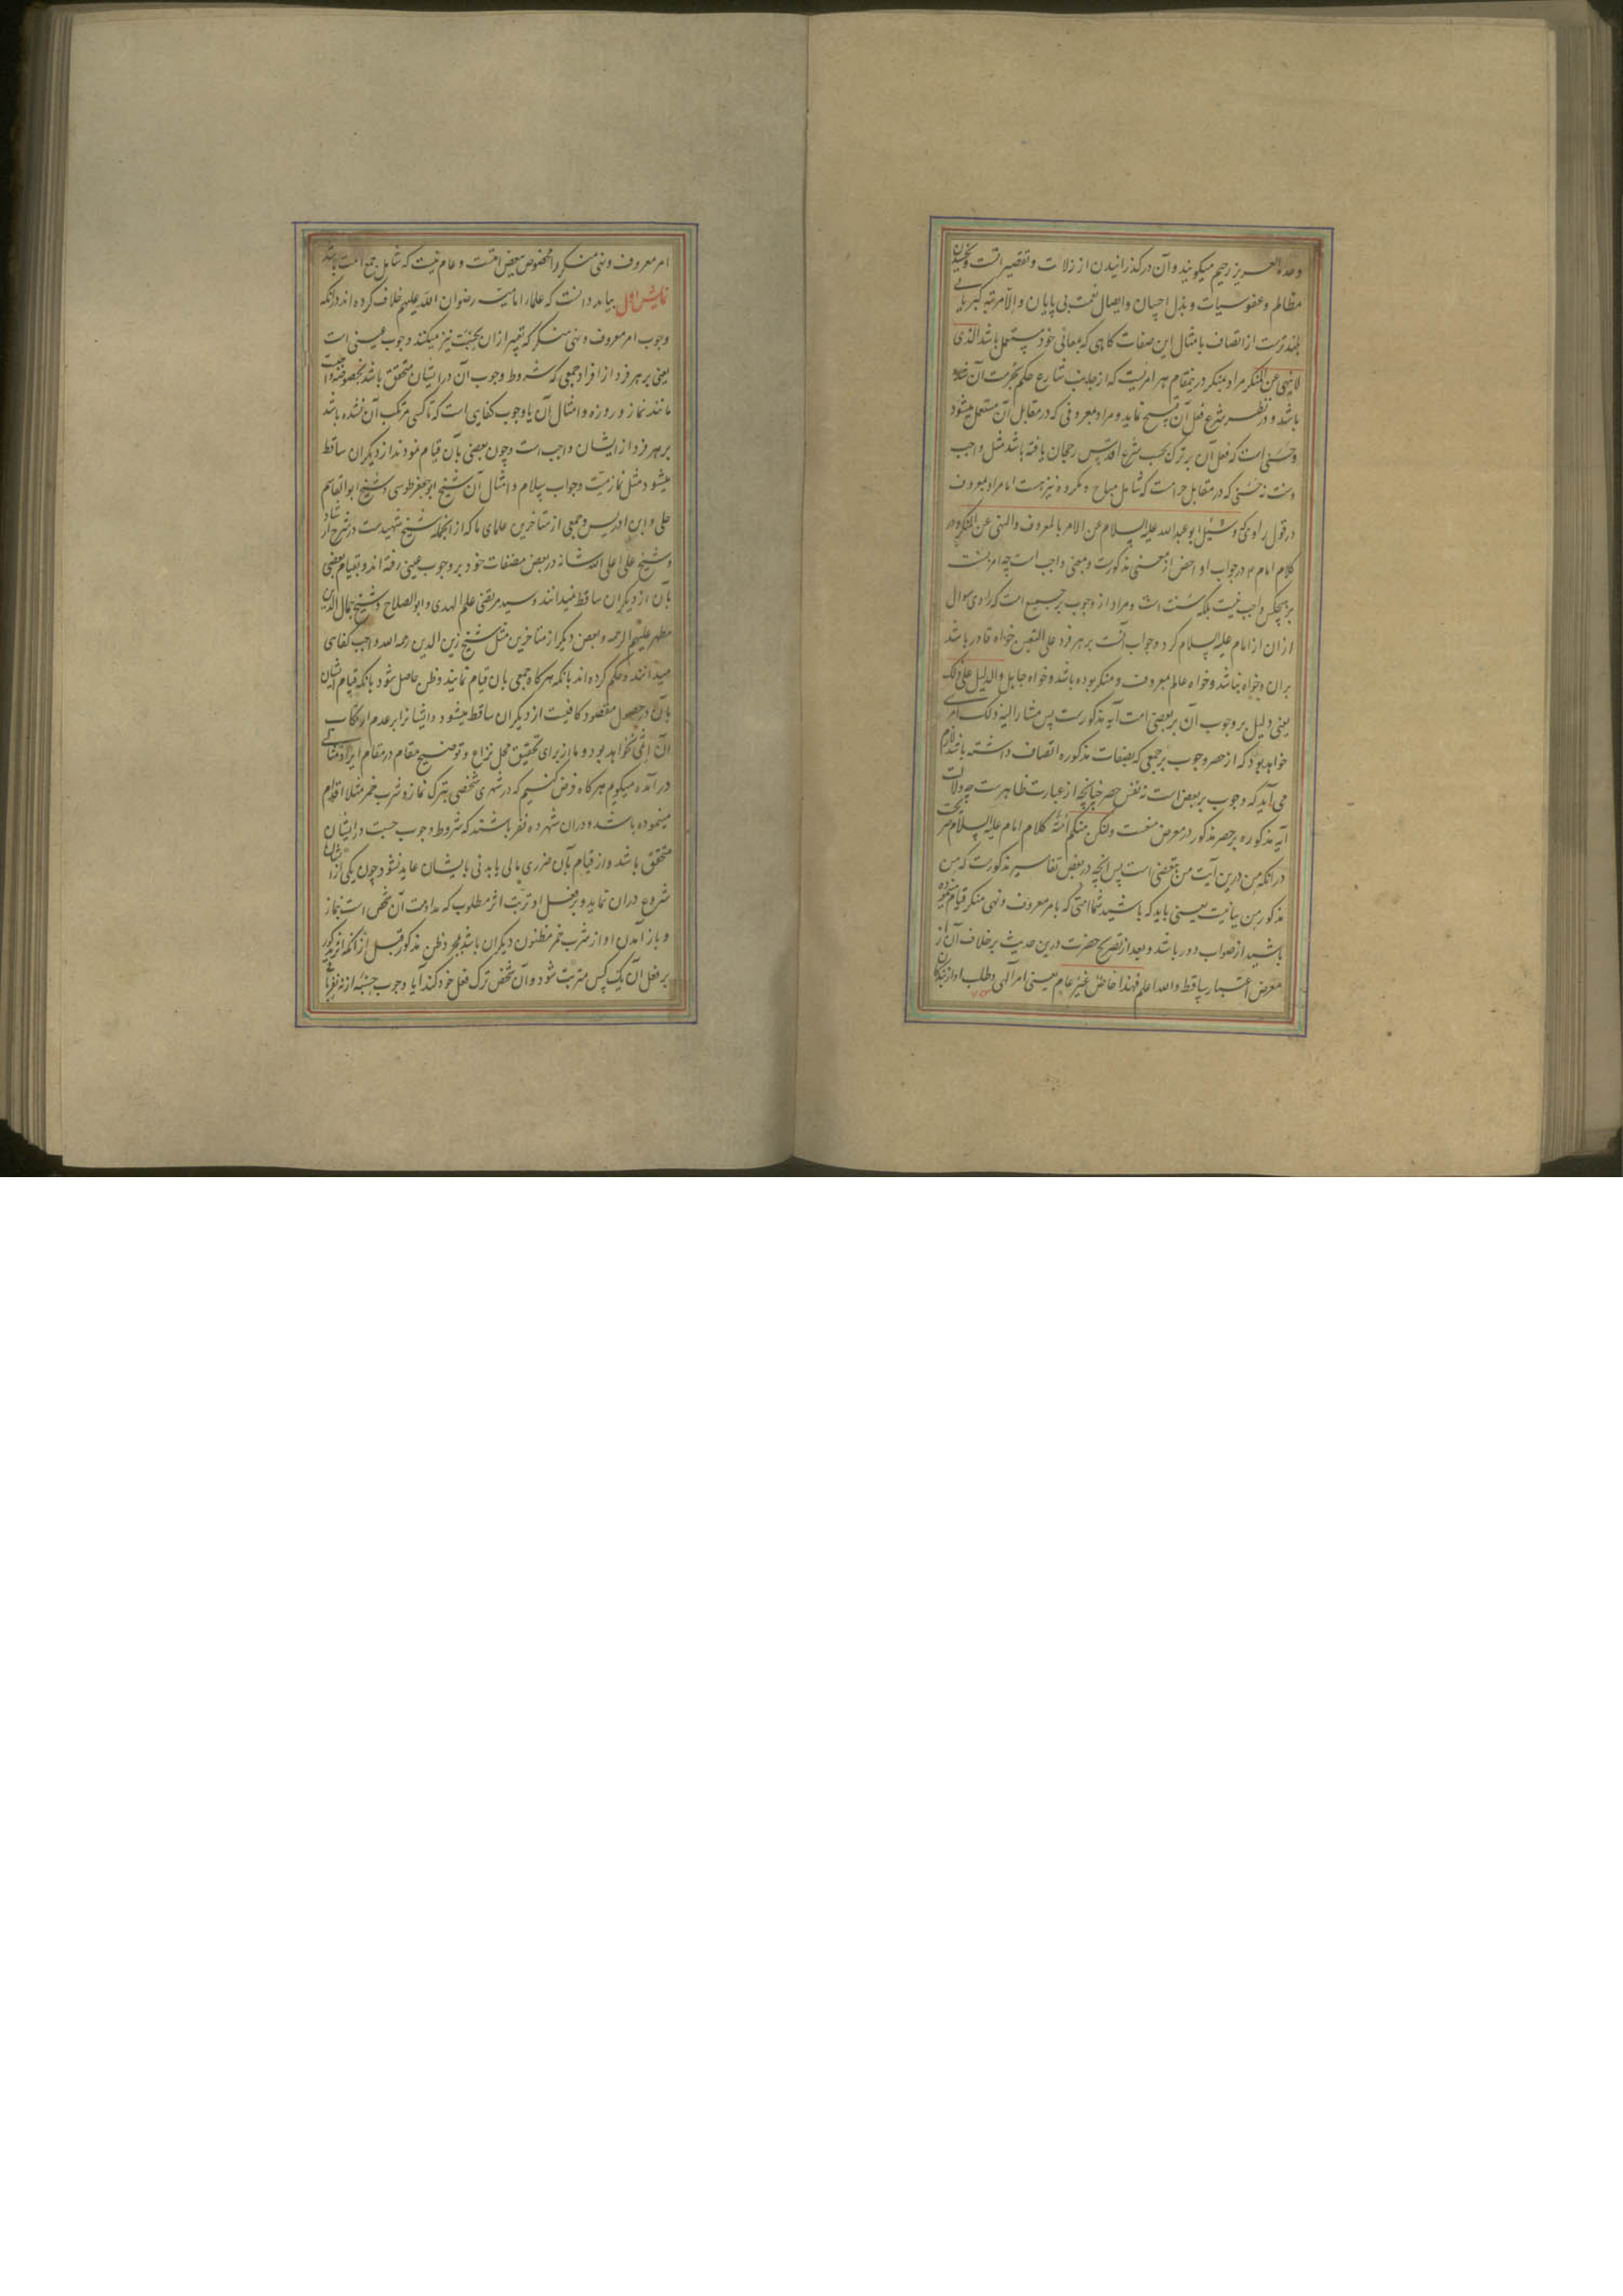 وحده العزیز رحیم میکویند و آن در کذرانیدن از زلات و تقصیراتست و بخشیدن
مظالم و عفو سیات و بذل احسان و ایصال نعمت بی پایان و الا مرتبه کبریایی
بلندترست از اتصاف بامثال این صفات کاهی که بمعانی خود مستعمل باشد الذی
لا ینهی عن المنکر مراد بمنکر درینمقام هر امریست که از جانب شارع حکم بحرمت آن شده
باشد و در نظر شرع فعل آن قبیح نماید و مراد بمعروفی که در مقابل آن مستعمل میشود
وحسنی است که فعل آن بر ترک بحسب شرع اقدس رجحان یافته باشد مثل واجب
وسنت نه حسنی که در مقابل حرامست که شامل مباح و مکروه نیز هست اما مراد بمعروف
در قول راوی که وسئل ابو عبدالله علیه السلام عن الامر بالمعروف والنهی عن المنکر و در
کلام امام ع در جواب او اخص از معنی مذکورست و بمعنی واجب است چه امر بسنت
بر هیچکس واجب نیست بلکه سنت است و مراد از وجوب بر جمیع امت که راوی سوال
ازان از امام علیه السلام کرد وجواب آنست بر هر فرد علی التعیین خواه قادر باشد
بران و خواه نباشد و خواه عالم بمعروف و منکر بوده باشد و خواه جاهل والدلیل علی ذلک
یعنی دلیل بر وجوب آن بر بعضی امت آیه مذکورست پس مشار الیه ذلک امری
خواهد بود که از حصر وجوب بر جمعی که بصفات مذکوره اتصاف داشته باشند لازم
می آید که وجوب بر بعض است نه نفس حصر چنانچه از عبارت ظاهرست چه دلالت
آیه مذکوره بر حصر مذکور در معرض منعست ولتکن منکم امة کلام امام علیه السلام صریحست
درانکه من درین آیت من تبعیضی است پس انچه در بعض تفاسیر مذکورست که من
مذکور من بیانیست یعنی باید که باشید شما امتی که بامر معروف و نهی منکر قیام نموده
باشید از صواب دور باشد و بعد از تصریح حضرت درین حدیث بر خلاف آن از
معرض اعتبار ساقط والله اعلم فهذا خاص غیر عام یعنی امر آلهی و طلب او از بندکان
امر معروف و نهی منکر را مخصوص ببعض امتست و عام نیست که شامل جمیع امت باشد
نمایش اول بباید دانست که علماء امامیه رضوان الله علیهم خلاف کرده اند درانکه
وجوب امر معروف و نهی منکر که تعبیر ازان بحسبت نیز میکنند وجوب عینی است
یعنی بر هر فرد از افراد جمعی که شروط وجوب آن درایشان متحقق باشد بخصوصه واجبست
مانند نماز و روزه و امثال آن یا وجوب کفایی است که تا کسی مرتکب آن نشده باشد
بر هر فرد از ایشان واجب است و چون بعضی بآن قیام نمودند از دیکران ساقط
میشود مثل نماز میت و جواب سلام و امثال آن شیخ ابو جعفر طوسی و شیخ ابو القاسم
حلی و ابن ادریس و جمعی از متاخرین علمای ما که از انجمله شیخ شهیدست در شرح ارشاد
و شیخ علی اعلی الله شانه در بعض مصنفات خود بر وجوب عینی رفته اند و بقیام بعضی
بآن از دیکران ساقط نمیدانند و سید مرتضی علم الهدی و ابو الصلاح و شیخ جمال الدین
مطهر علیهم الرحمه و بعض دیکر از متاخرین مثل شیخ زین الدین رحمه الله واجب کفایی
میدانند و حکم کرده اند بانکه هر کاه جمعی بان قیام نمایند و ظن حاصل شود بانکه قیام ایشان
بآن در حصول مقصود کافیست از دیکران ساقط میشود و ایشانرا بر عدم ارتکاب
آن اثمی نخواهد بود و ما از برای تحقیق محل نزاع و توضیح مقام در مقام ایراد مثالی
در آمده میکویم هر کاه فرض کنیم که در شهری شخصی بترک نماز و شرب خمر مثلا اقدام
مینموده باشد و دران شهر ده نفر باشند که شروط وجوب حسبت در ایشان
متحقق باشد و از قیام بآن ضرری مالی یا بدنی بایشان عاید نشود چون یکی از ایشان
شروع دران نماید و بر فعل او ترتب اثر مطلوب که مداومت آن شخص است بنماز
و باز آمدن او از شرب خمر مظنون دیکران باشد بمجرد ظن مذکور قبل از آنکه اثر مذکور
بر فعل آن یک کس مترتب شود و آن شخص ترک فعل خود کند آیا وجوب حسبت از نه نفر